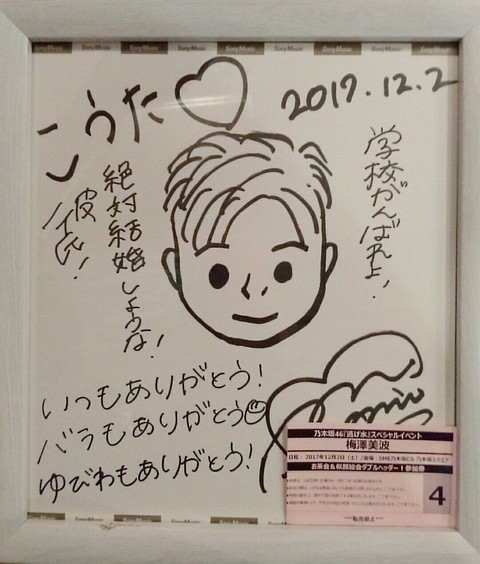 Sony Music Sony Music Sony Music Sony Music Sony Music
こうた♡
2017.12.2
学校がんばれよ!
絶対結婚しような!
彼氏!
いつもありがとう!
バラもありがとう☺
ゆびわもありがとう!
乃木坂46「逃げ水」スペシャルイベント
梅澤美波
日程:2017年12月2日(土)/会場:SME乃木坂ビル 乃木坂スクエア
お茶会&似顔絵会ダブルヘッダー!参加券
4
***転売禁止***